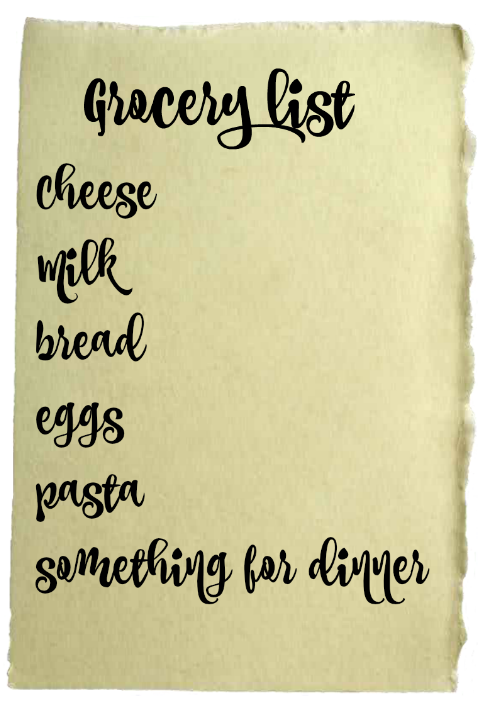 Grocery list
cheese
milk
bread
eggs
pasta
something for dinner